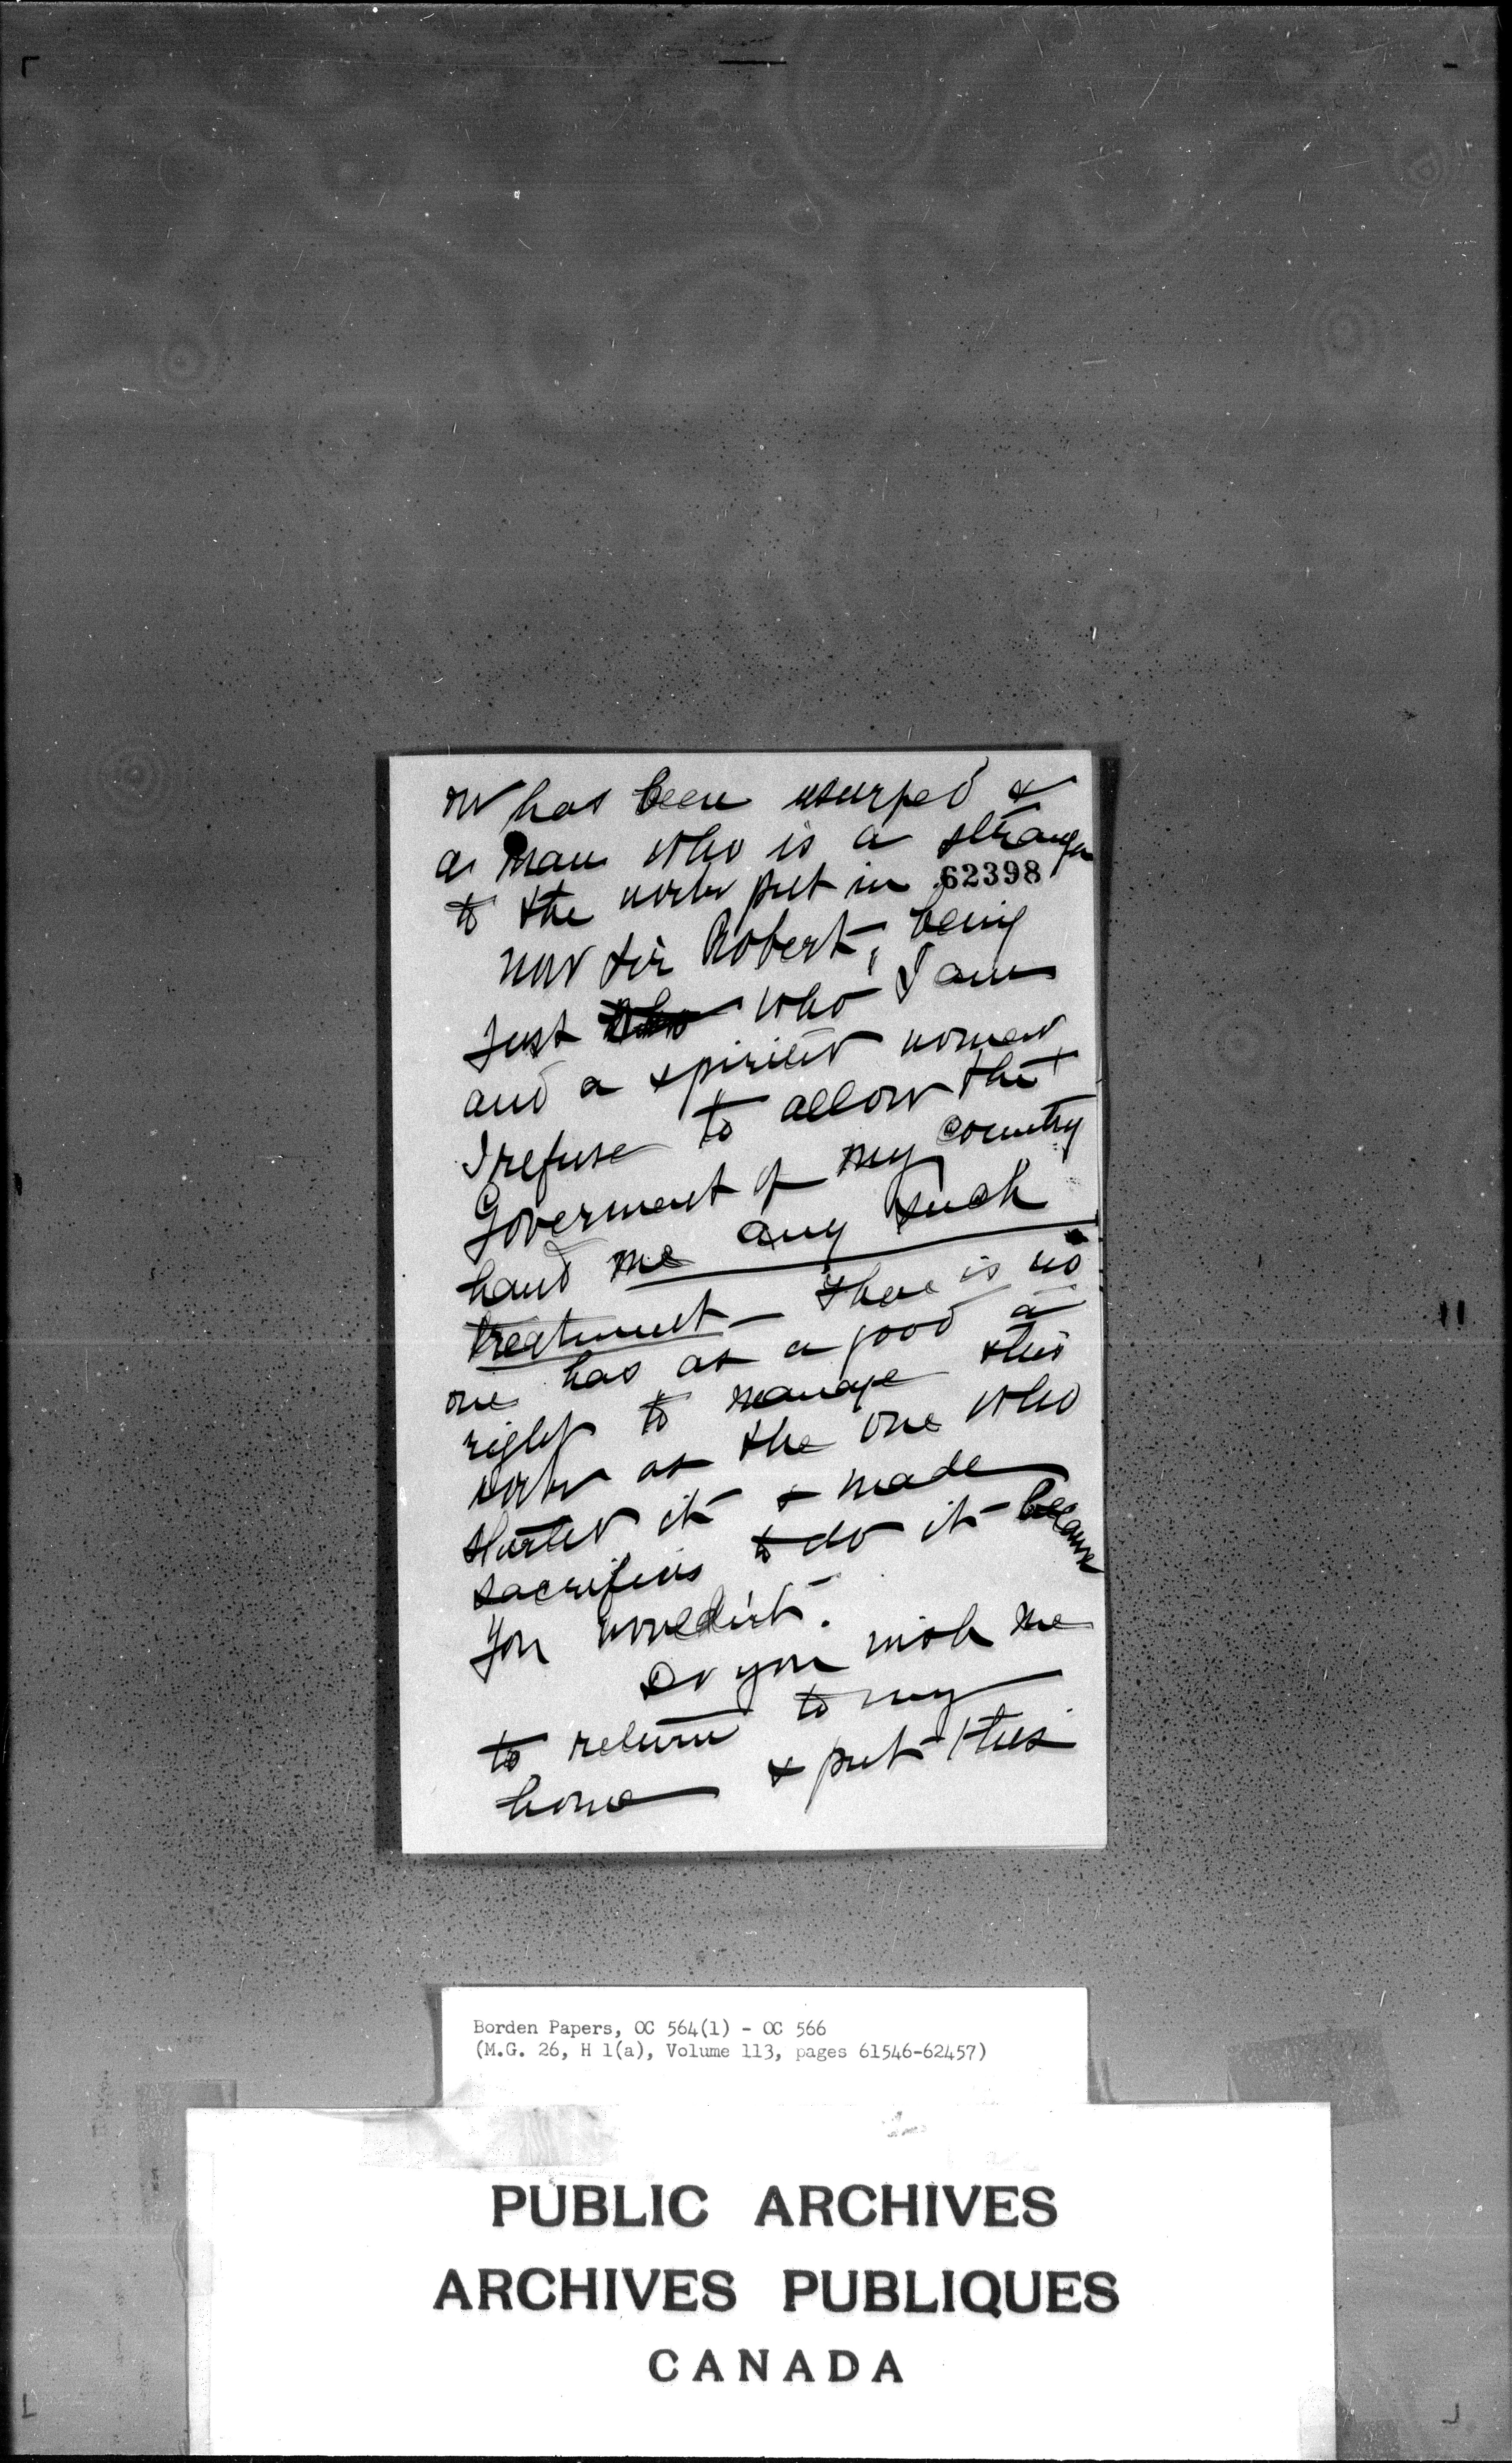 on has been usurped &
a man who is a stranger
to the work put in 62398
now Sir Robert, being
just who who I am
and a spirited woman
I refuse to allow the
Goverment of my country
hand me any such
treatment – there is no
one has as a good a
right to manage this
work as the one who
started it & made
sacrifices to do it because
you wouldint.
Do you wish me
to return to my
home & put this
Borden Papers, OC 564(1) - OC 566
(M.G. 26, H 1(a), Volume 113, pages 61546-62457)
PUBLIC ARCHIVES
ARCHIVES PUBLIQUES
CANADA